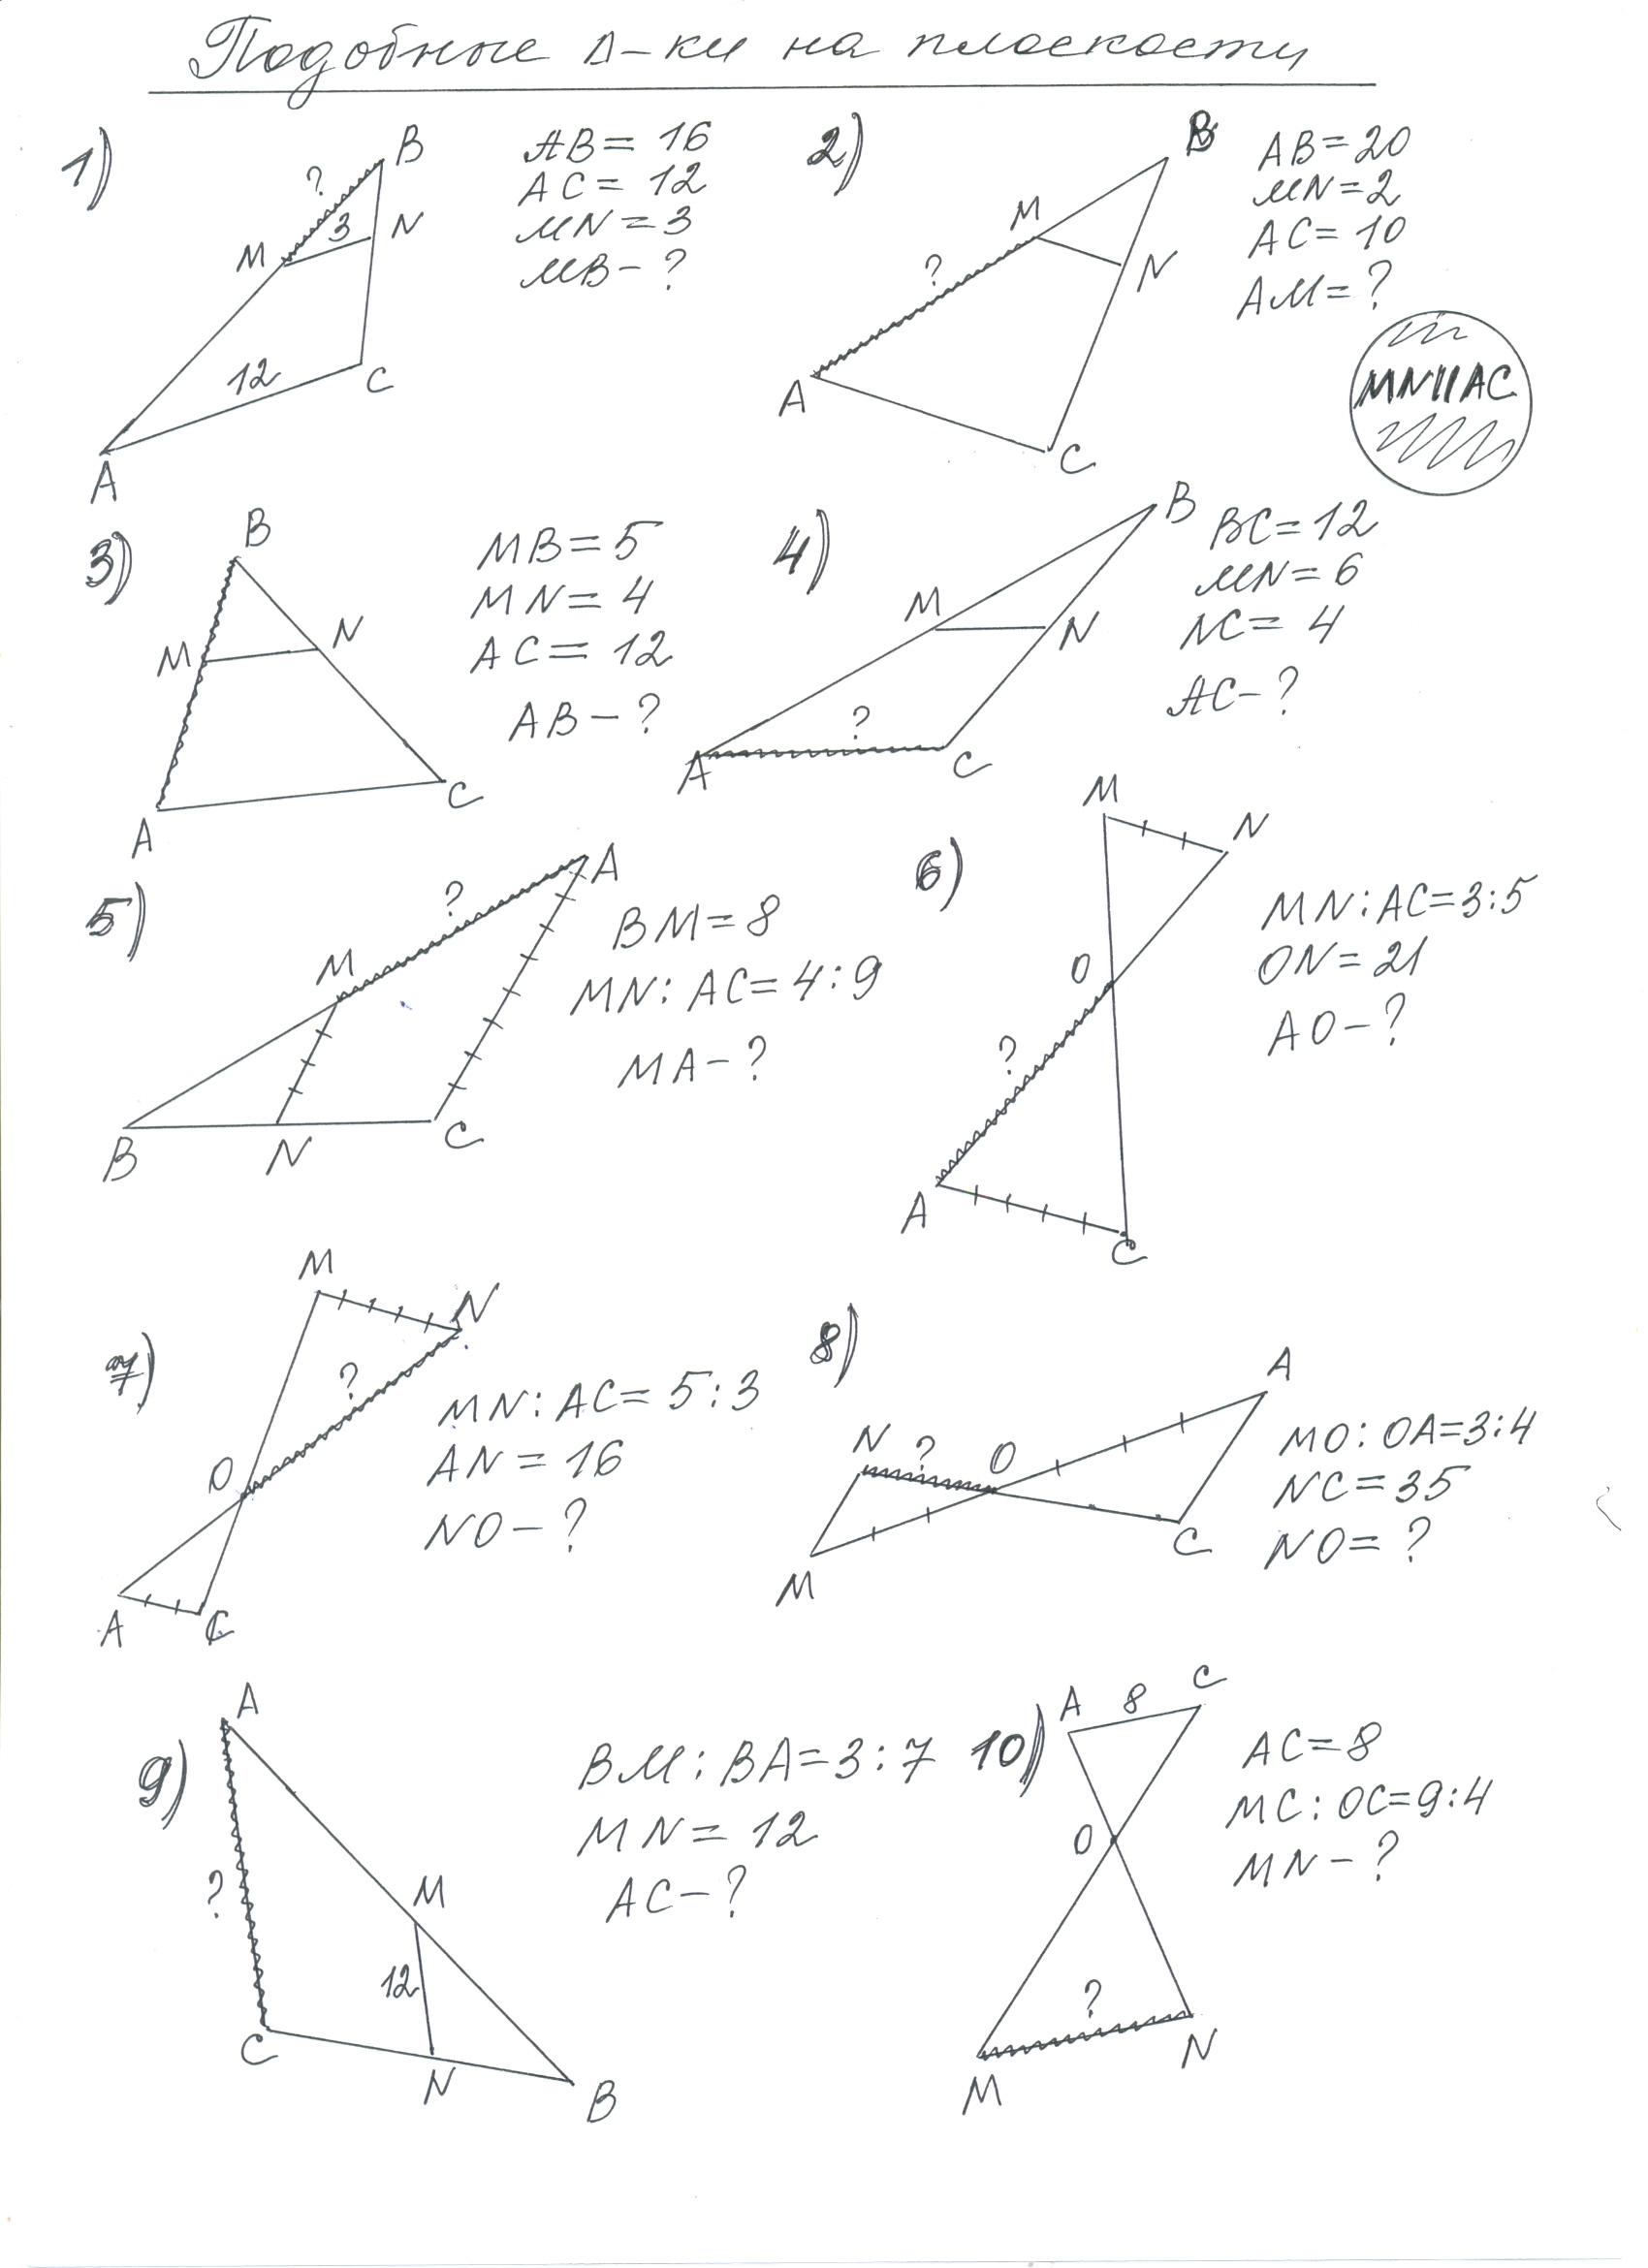 Подобные Δ-ки на плоскости
1)
B
?
3
N
M
12
C
A
AB = 16
AC = 12
MN = 3
MB - ?
2)
B
M
?
N
A
C
AB = 20
MN = 2
AC = 10
AM = ?
MN || AC
3)
B
M
N
A
C
MB = 5
MN = 4
AC = 12
AB - ?
4)
B
M
N
?
A
C
BC = 12
MN = 6
NC = 4
AC - ?
5)
A
?
M
B
N
C
BM = 8
MN : AC = 4 : 9
MA - ?
6)
M
N
O
?
A
C
MN : AC = 3 : 5
ON = 21
AO - ?
7)
M
N
?
O
A
C
MN : AC = 5 : 3
AN = 16
NO - ?
8)
A
N
?
O
C
M
MO : OA = 3 : 4
NC = 35
NO = ?
9)
A
?
M
12
C
N
B
BM : BA = 3 : 7
MN = 12
AC - ?
10)
A
8
C
O
?
M
N
AC = 8
MC : OC = 9 : 4
MN - ?